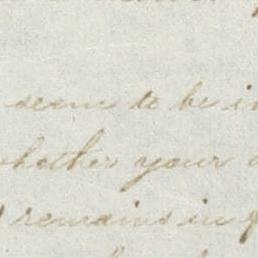 seem to be
whether your
remains in